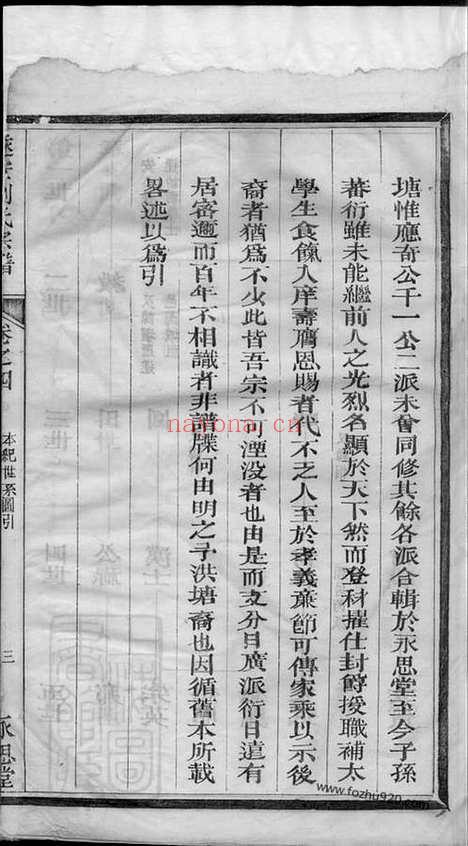 塘惟應奇公千一公二派未會同修其餘各派合輯於永思堂至今子孫
蕃衍雖未能繼前人之光烈名顯於天下然而登材擢仕封爵授職補太
學生食餼入庠壽膺恩賜者代不乏人至於孝義廉節可傳家乘以示後
裔者猶爲不少此皆吾宗不可湮没者也由是而支分日廣派衍日遠有
居密邇而百年不相識者非譜牒何由明之予洪塘裔也因循舊本所載
畧述以爲引
劉氏宗譜
卷之四
本紀世系圖引
三
永思堂
nayona.cn
www.fozhu920.com